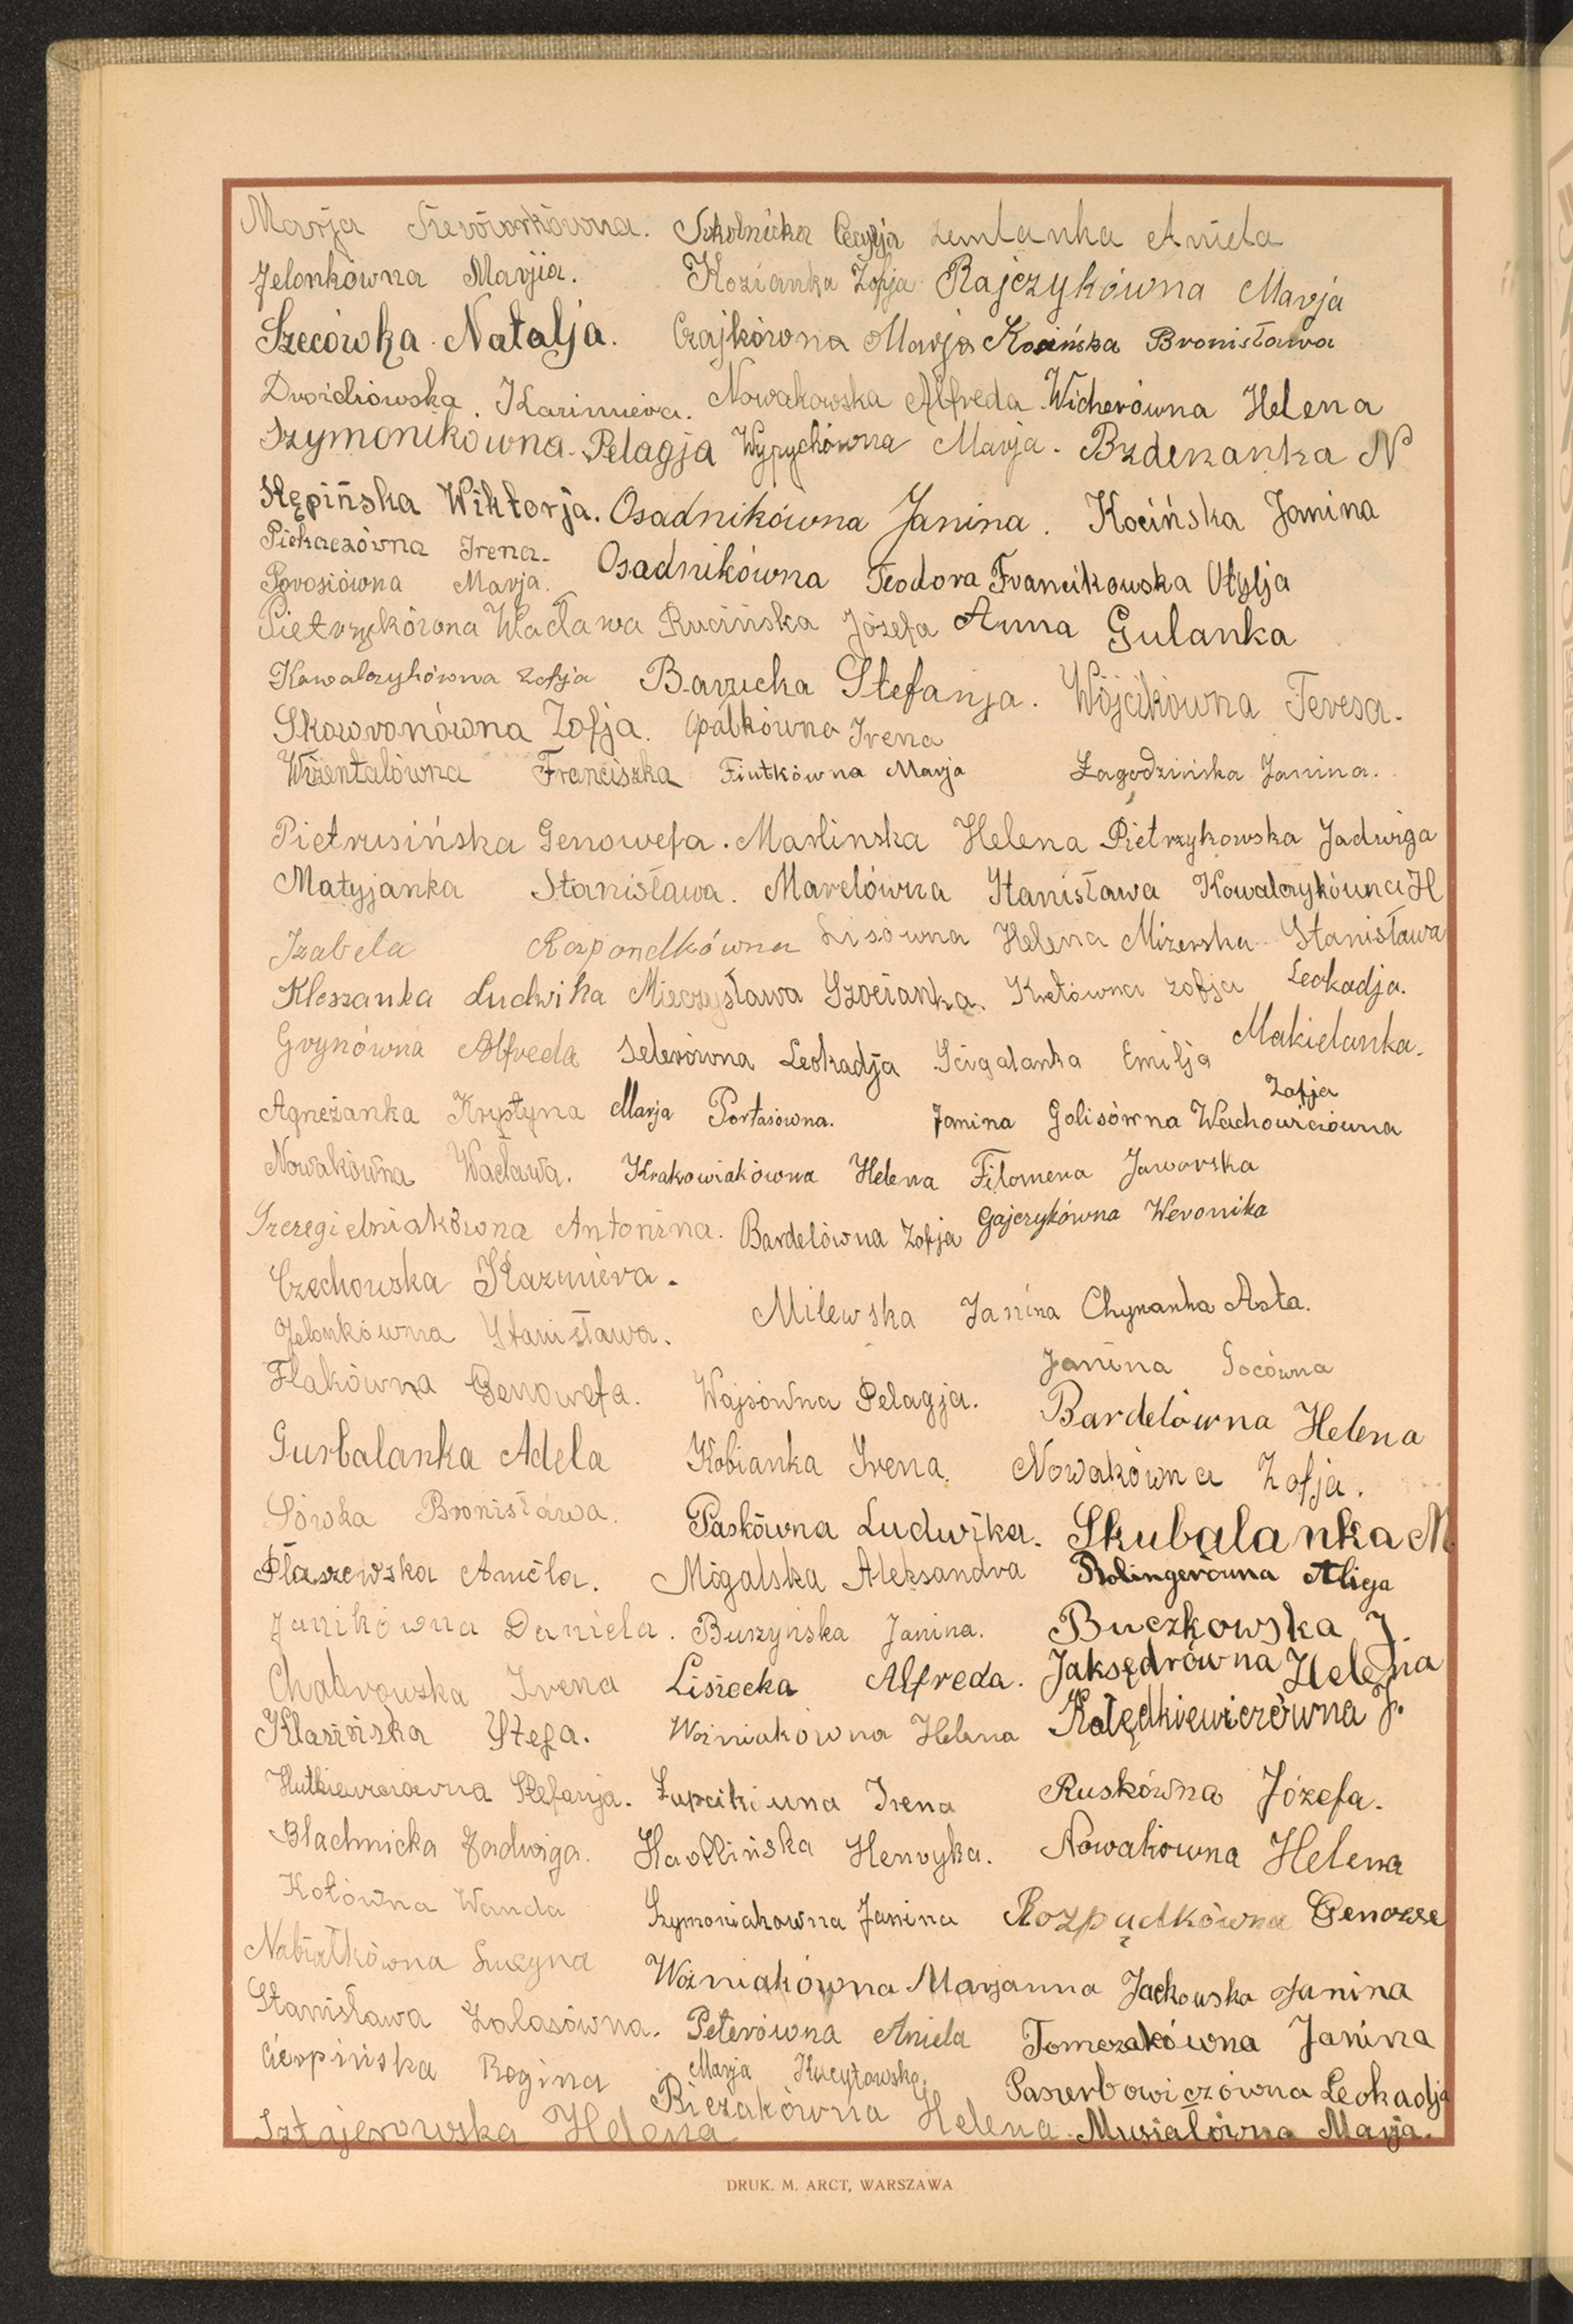 Marja Sokolnicka Cecylja Zemlanka Aniela
Jelonkówna Marjia. Kozianka Zofja Rajczykówna Marja
Szecówka Natalja. Czajkówna Marja Kosińska Bronisława
Nowakowska Alfreda Wicherówna Helena
Szymonikówna Pelagja Wypychówna Marja. Bzdenanka N
Kępińska Wiktorja. Osadnikówna Janina. Kocińska Janina
Piekaczówna Irena Osadnikówna Teodora Francikowska Otylja
Porosiówna Marja.
Pietrzykówna Wacława Rucińska Józefa Anna Gulanka
Kowalczykówna Zofja Barucka Stefanja. Wójcikówna Teresa.
Skowronówna Zofja. Opałkówna Irena
Wizentalówna Franciszka Fiutkówna Marja Łagodzińska Janina.
Pietrusińska Genowefa. Marlinska Helena Pietrzykowska Jadwiga
Matyjanka Stanisława. Marelówna Stanisława Kowalczykówna H
Izabela Rozpondkówna Lisówna Helena Mizerska Stanisława
Kleszanka Ludwika Mieczysława Kretówna Zofja Leokadja.
Grynówna Alfreda Selerówna Leokadja Ścigalanka Emilja Makielanka.
Agneżanka Krystyna Marja Portasówna. Janina Golisówna Wachowiczówna Zofja
Nowakówna Wacława. Krakowiakówna Helena Filomena Jaworska
Szczegielniakówna Antonina. Bardelówna Zofja Gajczykówna Weronika
Czechowska Kazimiera.
Milewska Janina Chynanka Asta.
Jelonkówna Stanisława.
Janina Gocówna
Flakówna Genowefa. Wajsówna Pelagja.
Bardelówna Helena
Gurbalanka Adela Kobianka Irena. Nowakówna Zofja.
Sówka Bronisława. Paskówna Ludwika. Skubalanka M.
Płaszewska Aniela. Mogalska Aleksandra Rolingerówna Alicja
Janikówna Daniela. Burzyńska Janina. Buczkowska J.
Chabrowska Irena Lisiecka Alfreda. Jaksędrówna Helena
Klasińska Stefa. Woźniakówna Helena Kołędkiewiczówna J.
Hutkiewiczówna Stefanja. Łupcikówna Irena Ruskówna Józefa.
Blachnicka Jadwiga. Karlińska Henryka. Nowakówna Helena
Kotówna Wanda Szymoniakowna Janina Rozpądkówna Genowe
Nabiałkówna Lucyna Woźniakówna Marjanna Jackowska Janina
Stanisława Zalasówna. Peterówna Aniela Tomczakówna Janina
Cierpińska Regina Marja Kucytowska. Paserbowiczówna Leokadja
Sztajerowska Helena Bieżakówna Helena Musiałówna Marja.
DRUK. M. ARCT, WARSZAWA